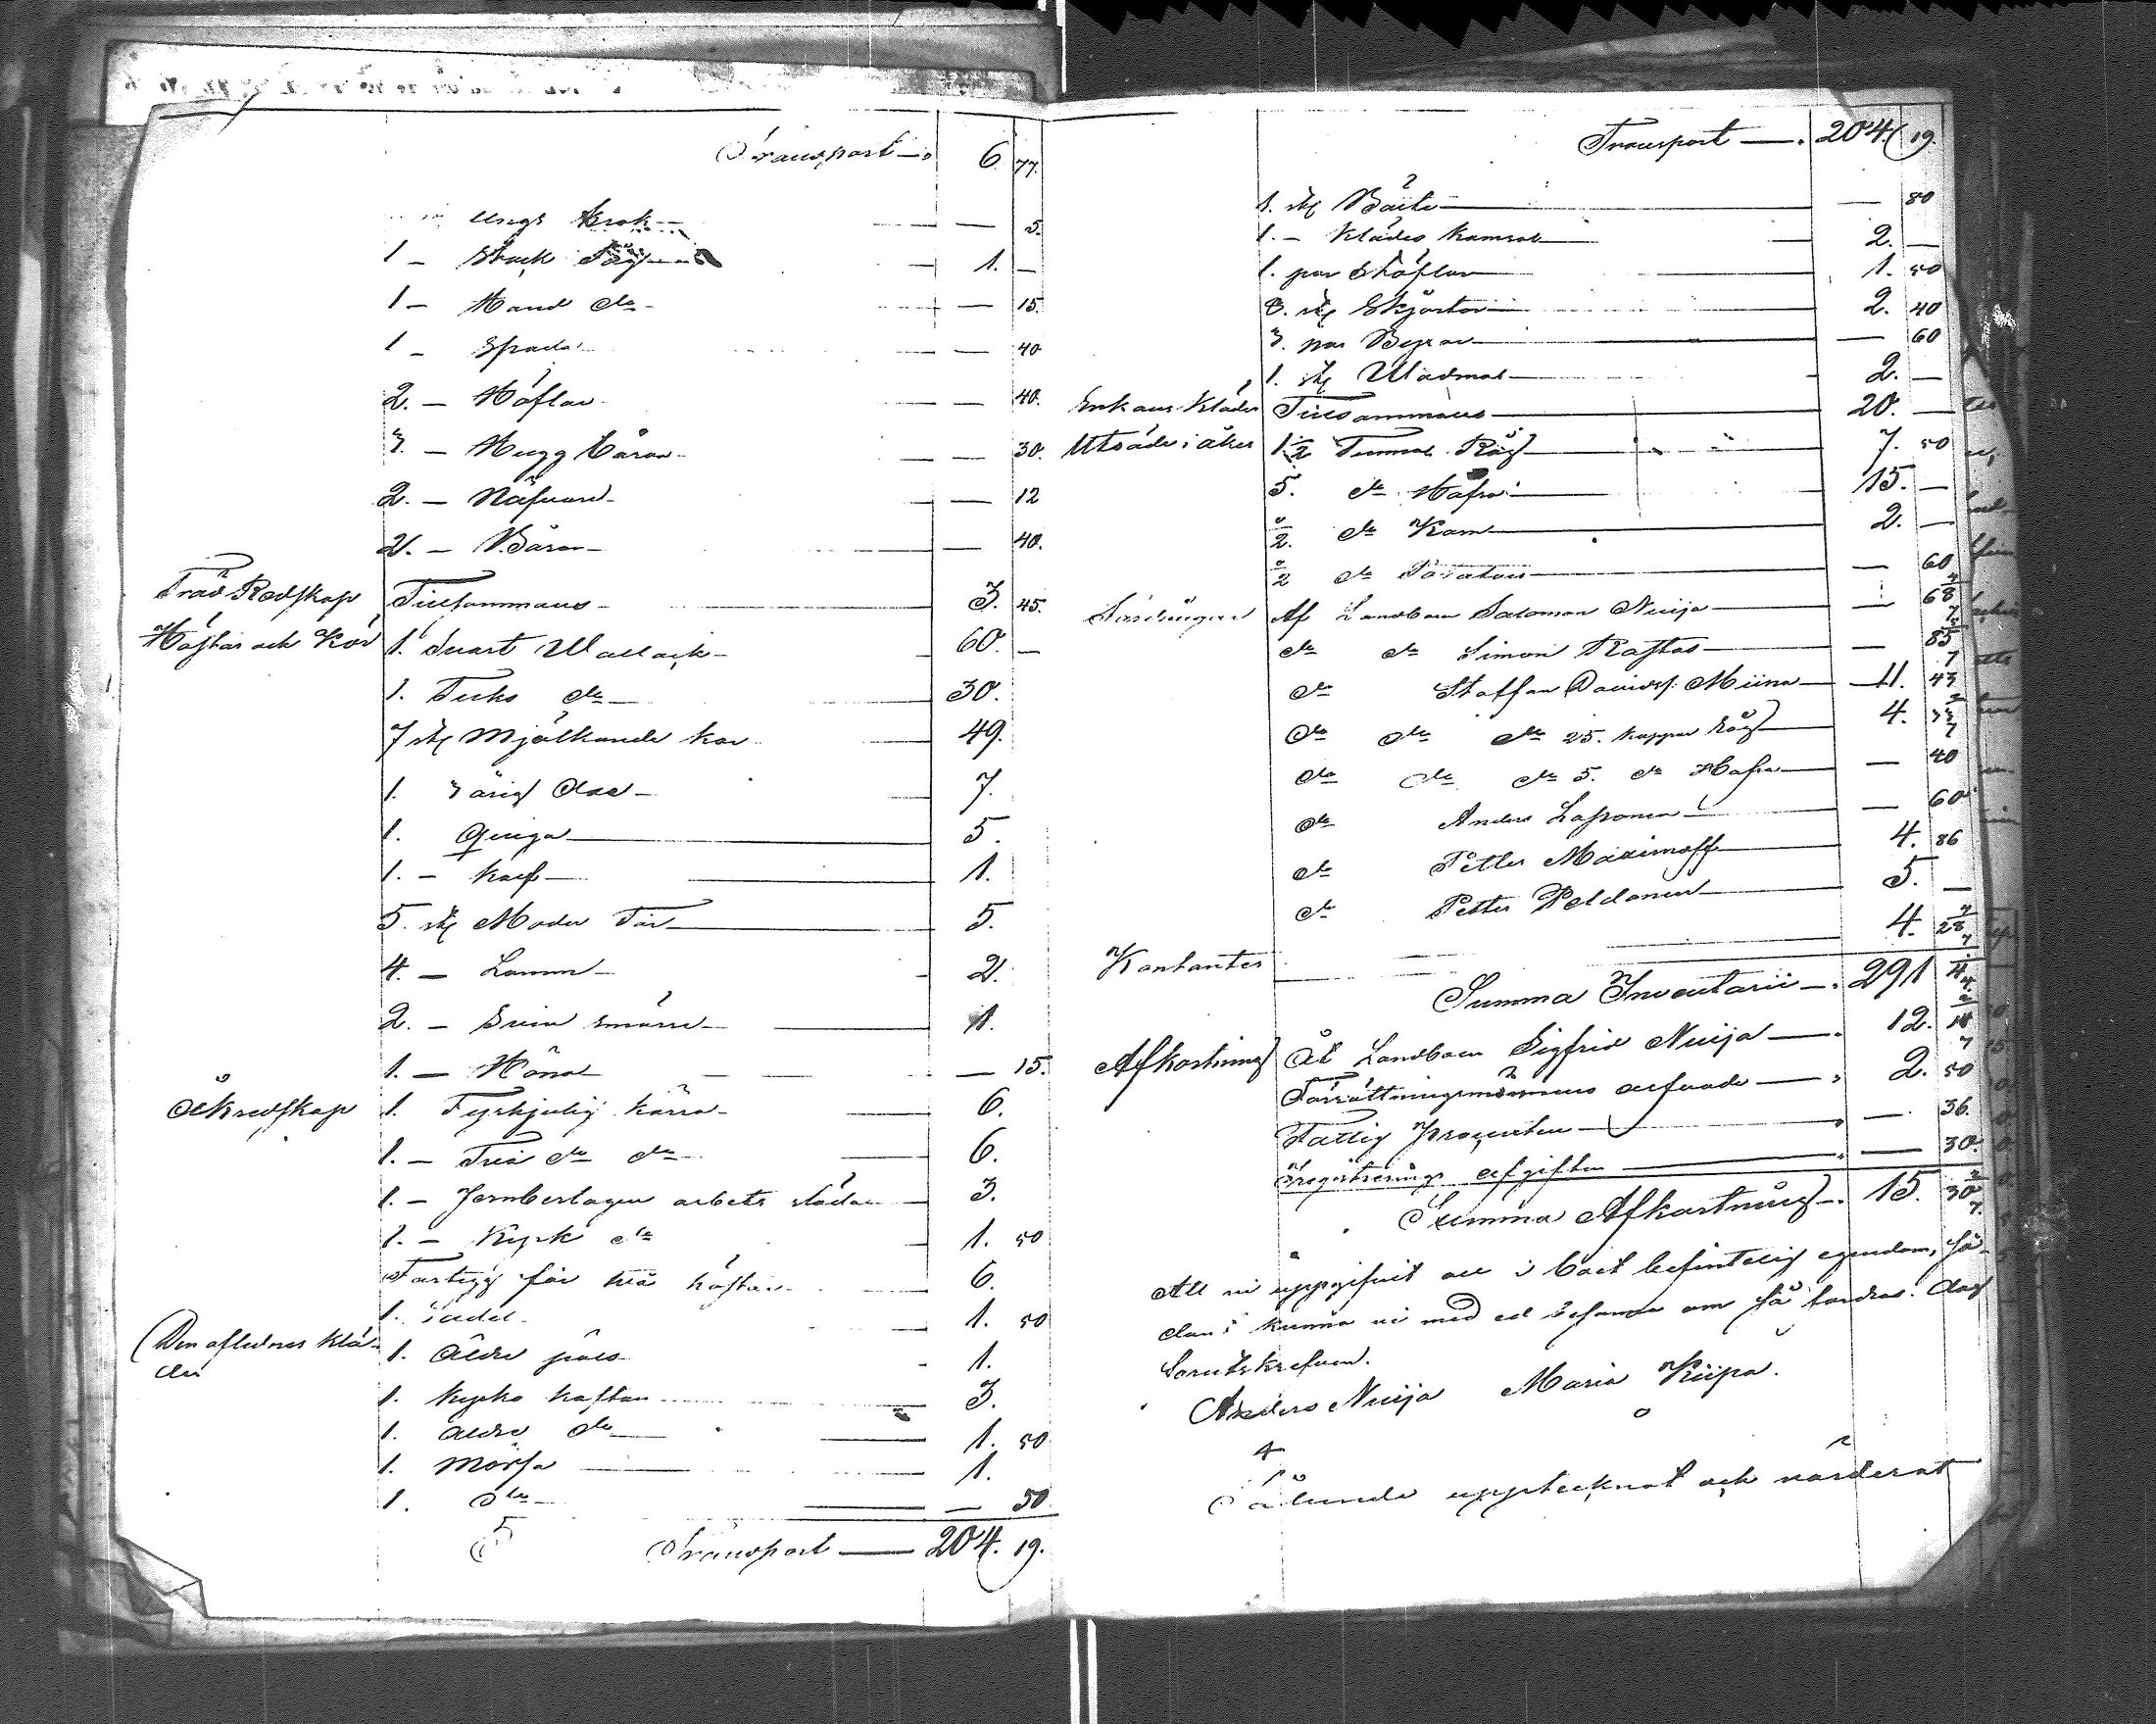 Transport — 6. 77.
ungs krok — — 5.
1 — Stock Såg — 1. —
1 — Hand do — — 15.
1 — Spada — 40
2. — Höflar — 40.
3. — Hugg Eåron — 30.
2. — Näfvare — 12
2. — Båron — 40.
Träd Redskap Tillsammans — 3. 45.
Hästar och Kor 1. Svart Wallack — 60. —
1. Fuks do — 30.
7 st Mjölkande kor 49.
1. 3 årig Oxe — 7.
1. Qviga — 5.
1. — Kalf — 1.
5. st Moder Får — 5.
4. — Lamm — 2.
2. — Svin smärre — 1.
1. — Höna — 15.
Åkredskap 1. Fyrhjulig kärra — 6.
1. — Två do do — 6.
1. — Jernbeslagen arbets släda — 3.
1. — Kyrk do 1. 50
Fartyg för två hästar 6.
1. Sadel 1. 50
Den aflednes klä- 1. Äldre päls — 1.
der
1. Kyrko kaftan 3.
1. äldre do — 1. 50
1. Mössa — 1.
1. do — — 50
Transport — 204. 19.
Transport — 204. 19.
1. st Bälte — — 80
1. — Klädes Kamsol — 2. —
1. par Stöflar — 1. 50
3. st Skjortor — 2. 40
3. par Byxor — — 60
1. st Wadmal — 2. —
Enkans Kläder Tillsammans — 20. —
Utsäde i åker 1 1/2 Tunnor Råg — 7. 50
5. do Hafra — 15. —
2. do Korn — 2. —
2 do Potatoes — — 60
Fordringar Af Landbon Salomon Nuija — — 68 4/7
do do Simon Rastas — — 85 5/7
do Staffan Davidsf. Miina — 11. 43
do do do 25. kappar Råg — 4.
do do do 5. do Hafra — — 40
do Anders Laponen — — 60
do Petter Maximoff — 4. 86
do Petter Peldonen — 5. —
Kontanter 4. 28 4/7
Summa Inventarii — 291
Afkortning Åt Landbon Sigfrid Nuija — 12. 14 2/7
Förrättningsmännens arfvode — 2. 50
Fattig procenten — — 36.
Registrerings afgiften — — 30.
Summa Afkortning — 15. 30 2/7
Att vi uppgifvit all i boet befintelig egendom, så-
dant kunna vi med ed besanna om så fordras. Dag
som utskrefven.
Anders Nuija Maria Kiipa.
Sålunda upptecknat och värderat